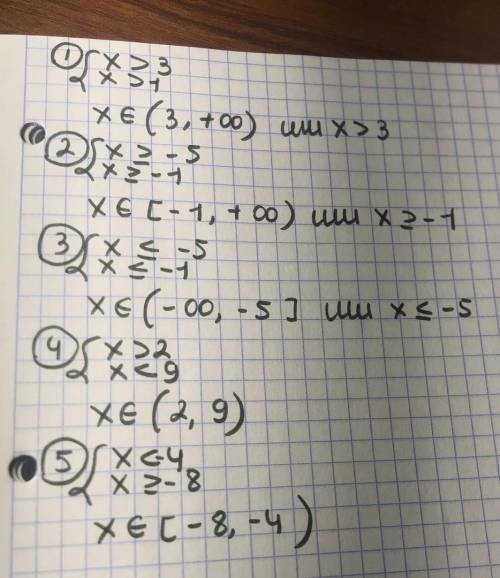 1 { x > 3
x > 1
x ∈ (3, +∞) или x > 3
2 { x ≥ -5
x ≥ -1
x ∈ [-1, +∞) или x ≥ -1
3 { x ≤ -5
x ≤ -1
x ∈ (-∞, -5] или x ≤ -5
4 { x > 2
x < 9
x ∈ (2, 9)
5 { x < -4
x ≥ -8
x ∈ [-8, -4)